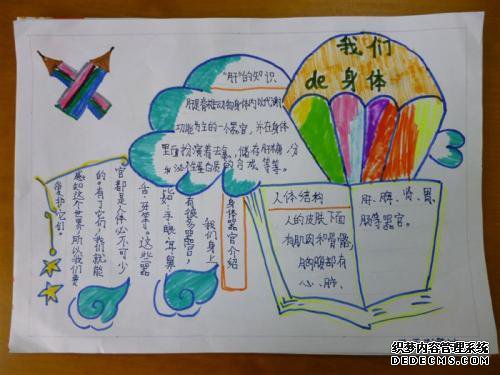 我们
de 身体
“肝”的知识
肝是脊椎动物身体内以代谢
功能为主的一个器官，并在身体
里面扮演着去氧、储存肝糖、分
泌性蛋白质的合成等等。
身体器官介绍
我们身上
有很多器官，
比如：手、眼、耳、鼻、
舌、牙等。这些器
官都是人体必不可少
的。有了它们，我们就能
感知这个世界，所以我们要
保护它们。
人体结构
人的皮肤下面
有肌肉和骨骼，
胸腹部有
心、肺、
肝、脾、肾、胃、
肠等器官。
织梦内容管理系统
DEDECMS.COM